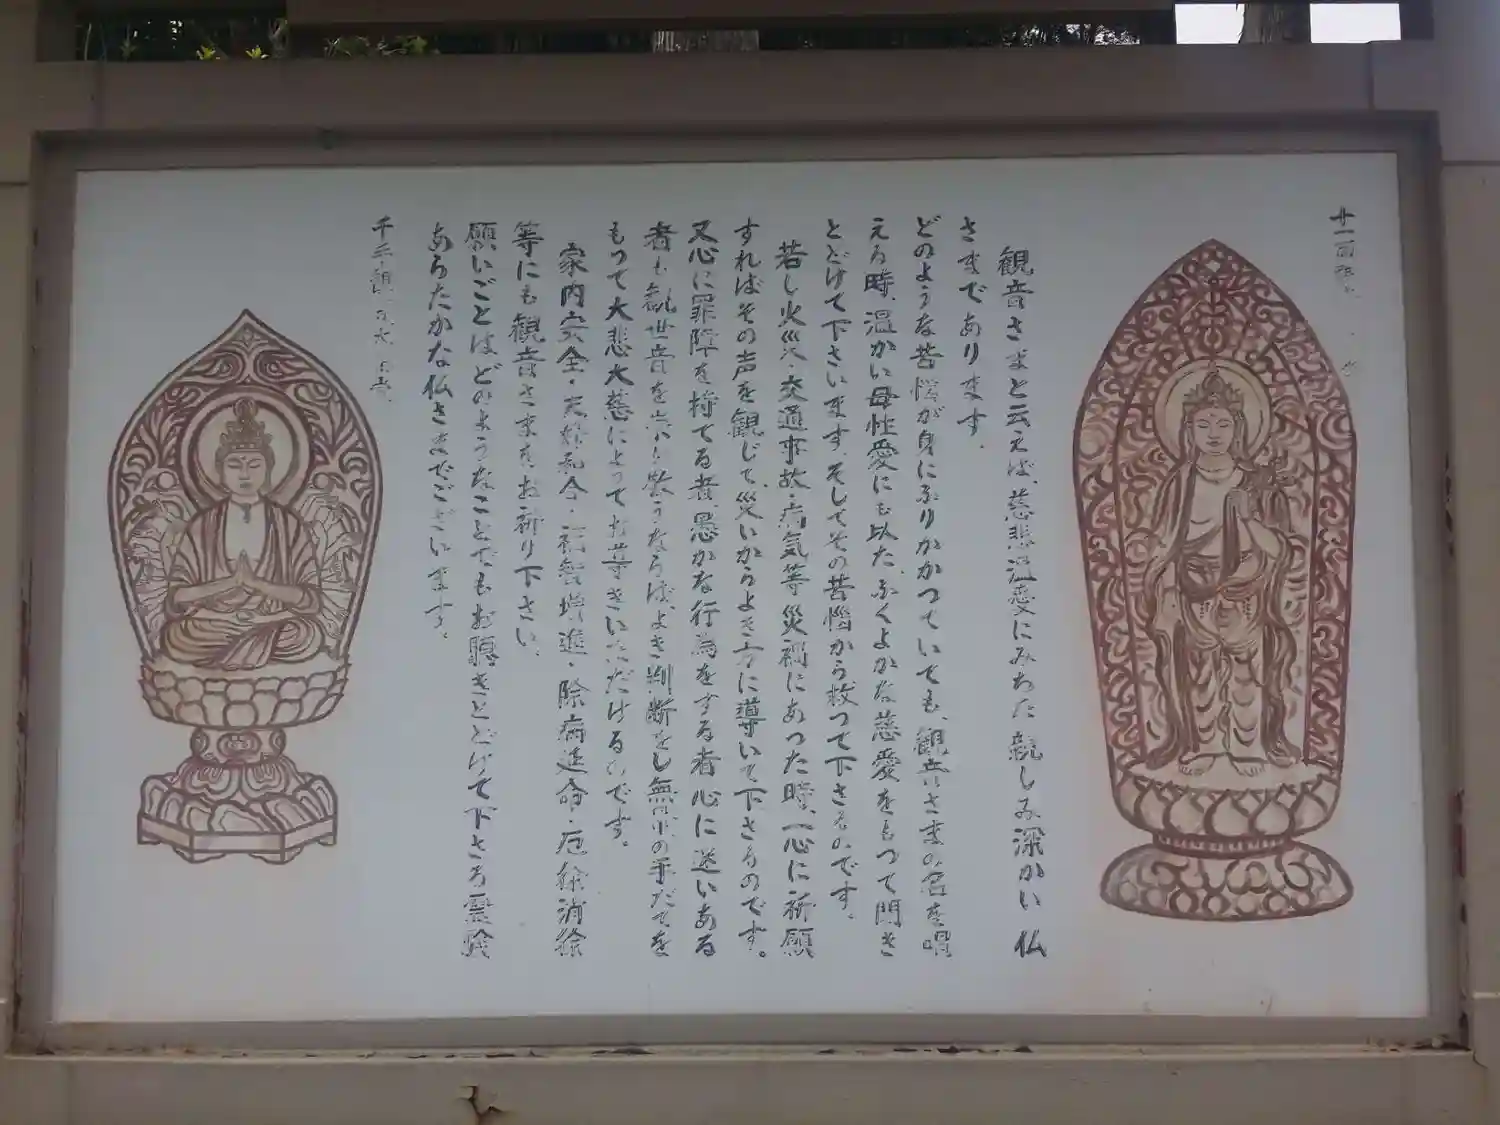 観音さまと云えば、慈悲温愛にみちた親しみ深かい仏
さまであります。
どのような苦悩が身にふりかかっていても、観音さまの名を唱
える時、温かい母性愛にも似た、ふくよかな慈愛をもって聞き
とどけて下さいます。そしてその苦悩から救って下さるのです。
若し火災・交通事故・病気等災禍にあった時、一心に祈願
すればその声を観じて、災いからよき方に導いて下さるのです。
又心に罪障を持てる者、愚かな行為をする者、心に迷いある
者も観世音を念じ敬うならば、よき判断をし無畏の手だてを
もって大悲大慈によってお導きいただけるのです。
家内安全・夫婦和合・福智増進・除病延命・厄除消除
等にも観音さまをお祈り下さい。
願いごとはどのようなことでもお聴きとどけて下さる霊験
あらたかな仏さまでございます。
千手観